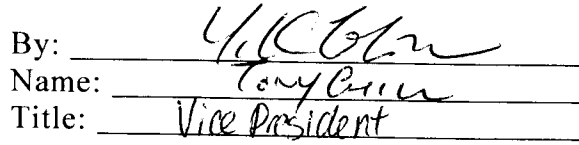 By:
Name: Tony
Title: Vice President